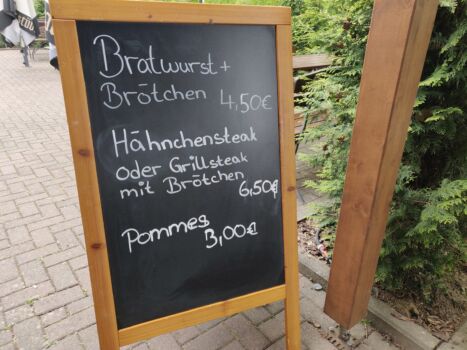 Bratwurst +
Brötchen 4,50€
Hähnchensteak
oder Grillsteak
mit Brötchen
6,50€
Pommes
3,00€